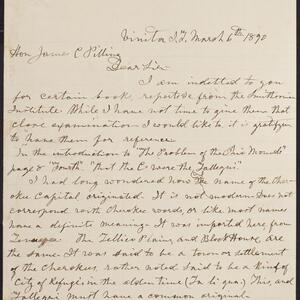 Vinita I.T. March 6th 1890
Hon James C Pilling
Dear Sir
I am indebted to you
for certain books, reports from the Smithsonian
Institute While I have not time to give them that
close examination I would like to it is gratifying
to have them for reference.
In the introduction to "The Problem of the Ohio Mounds"
page 8 "fourth" That the C were the Tallegwi"
I had long wondered how the name of the Cher-
okee Capital originated. It is not modern. Does not
correspond with Cherokee words, or like most names
have a definite meaning. It was imported here from
Tennessee. The Tellico Plains and Block House, are
the same. It was said to be a town or settlement
of the Cherokees, rather noted said to be a kind of
City of Refuge, in the olden time (Ta li qua). This and
Tallegwi must have a common original.